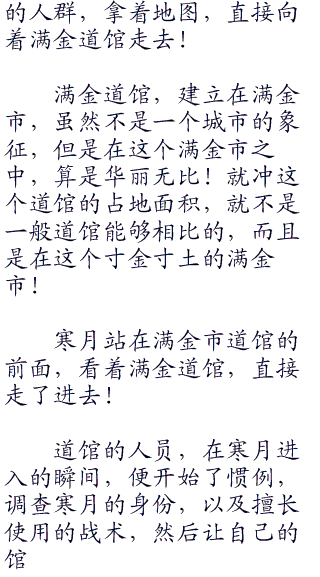 的人群，拿着地图，直接向
着满金道馆走去！
满金道馆，建立在满金
市，虽然不是一个城市的象
征，但是在这个满金市之
中，算是华丽无比！就冲这
个道馆的占地面积，就不是
一般道馆能够相比的，而且
是在这个寸金寸土的满金
市！
寒月站在满金市道馆的
前面，看着满金道馆，直接
走了进去！
道馆的人员，在寒月进
入的瞬间，便开始了惯例，
调查寒月的身份，以及擅长
使用的战术，然后让自己的
馆